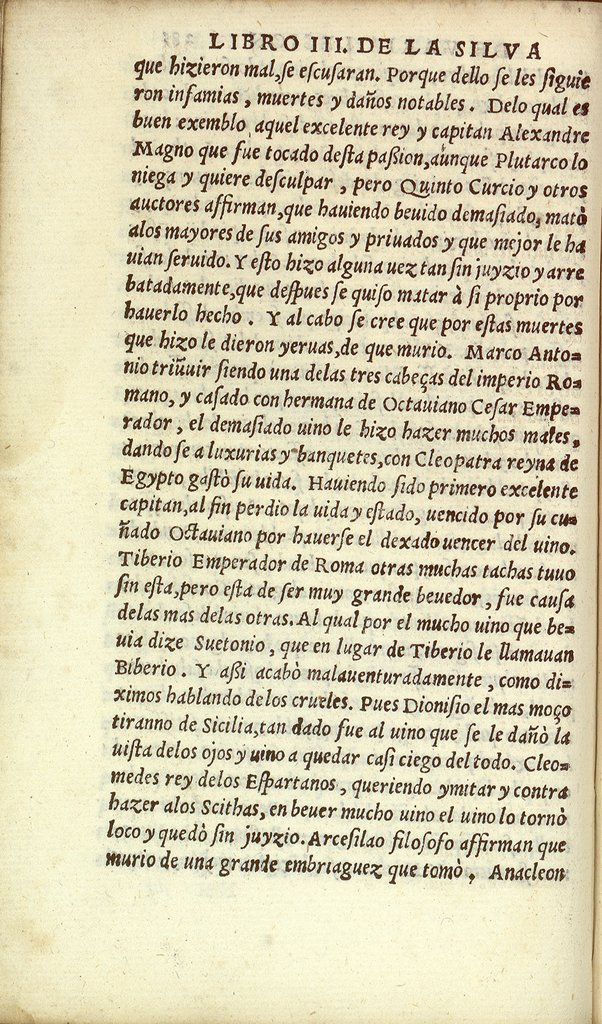 LIBRO III. DE LA SILVA
que hizieron mal, se escusaran. Porque dello se les siguie
ron infamias, muertes y daños notables. Delo qual es
buen exemblo aquel excelente rey y capitan Alexandre
Magno que fue tocado desta passion, aunque Plutarco lo
niega y quiere desculpar, pero Quinto Curcio y otros
auctores affirman, que hauiendo beuido demasiado, matò
alos mayores de sus amigos y priuados y que mejor le ha
uian seruido. Y esto hizo alguna vez tan sin juyzio y arre
batadamente, que despues se quiso matar à si proprio por
hauerlo hecho. Y al cabo se cree que por estas muertes
que hizo le dieron yeruas, de que murio. Marco Anto-
nio triũuir siendo una delas tres cabeças del imperio Ro-
mano, y casado con hermana de Octauiano Cesar Empe-
rador, el demasiado uino le hizo hazer muchos males,
dando se a luxurias y banquetes, con Cleopatra reyna de
Egypto gastò su uida. Hauiendo sido primero excelente
capitan, al fin perdio la uida y estado, uencido por su cu-
ñado Octauiano por hauerse el dexado uencer del uino.
Tiberio Emperador de Roma otras muchas tachas tuuo
sin esta, pero esta de ser muy grande beuedor, fue causa
delas mas delas otras. Al qual por el mucho uino que be-
uia dize Suetonio, que en lugar de Tiberio le llamauan
Biberio. Y assi acabò malauenturadamente, como di-
ximos hablando delos crueles. Pues Dionisio el mas moço
tiranno de Sicilia, tan dado fue al uino que se le dañò la
uista delos ojos y uino a quedar casi ciego del todo. Cleo-
medes rey delos Espartanos, queriendo ymitar y contra
hazer alos Scithas, en beuer mucho uino el uino lo tornò
loco y quedò sin juyzio. Arcesilao filosofo affirman que
murio de una grande embriaguez que tomò, Anacleon